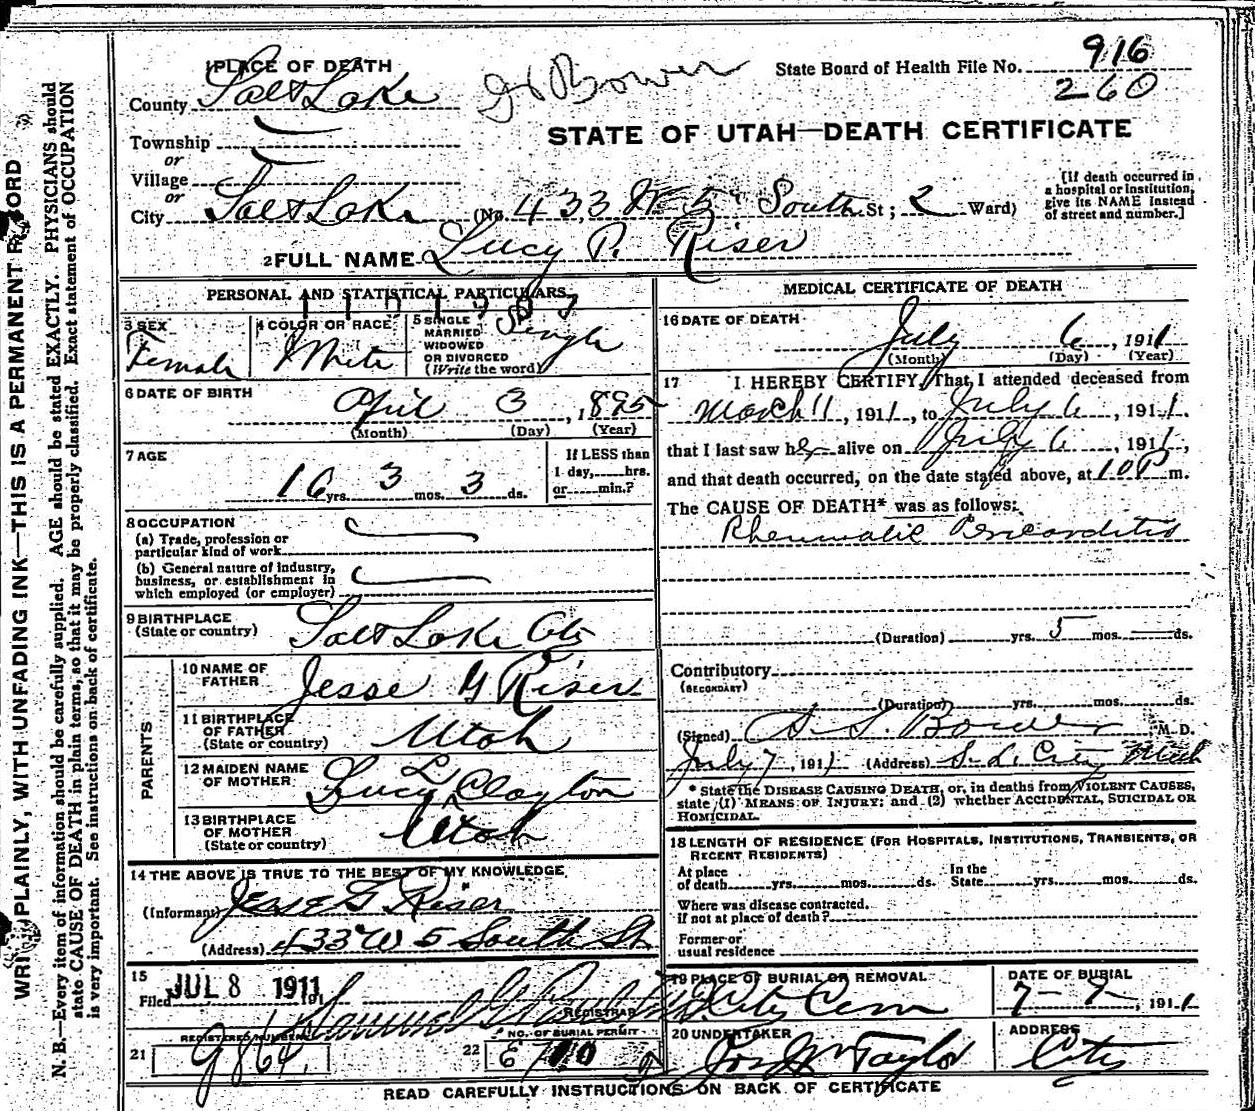 WRITE PLAINLY, WITH UNFADING INK—THIS IS A PERMANENT RECORD
N. B.—Every item of information should be carefully supplied. AGE should be stated EXACTLY. PHYSICIANS should
state CAUSE OF DEATH in plain terms, so that it may be properly classified. Exact statement of OCCUPATION
is very important. See instructions on back of certificate.
1 PLACE OF DEATH
State Board of Health File No. 916
260
County Salt Lake
STATE OF UTAH—DEATH CERTIFICATE
Township
or
Village
or
City Salt Lake (No. 433 W 5" South St; 2 Ward)
[If death occurred in
a hospital or institution,
give its NAME instead
of street and number.]
2 FULL NAME Lucy P. Riser
PERSONAL AND STATISTICAL PARTICULARS
3 SEX
Female
4 COLOR OR RACE
White
5 SINGLE
MARRIED
WIDOWED
OR DIVORCED
(Write the word)
Single
6 DATE OF BIRTH
April 3, 1895
(Month) (Day) (Year)
7 AGE
16 yrs. 3 mos. 3 ds.
If LESS than
1 day,......hrs.
or......min.?
8 OCCUPATION
(a) Trade, profession or
particular kind of work
(b) General nature of industry,
business, or establishment in
which employed (or employer)
9 BIRTHPLACE
(State or country) Salt Lake City
PARENTS
10 NAME OF
FATHER Jesse G Riser
11 BIRTHPLACE
OF FATHER
(State or country) Utah
12 MAIDEN NAME
OF MOTHER Lucy L Clayton
13 BIRTHPLACE
OF MOTHER
(State or country) Utah
14 THE ABOVE IS TRUE TO THE BEST OF MY KNOWLEDGE
(Informant) Jesse G Riser
(Address) 433 W 5 South St.
15
Filed JUL 8 1911
REGISTRAR
REGISTERED NUMBER
21 G864
NO. OF BURIAL PERMIT
22
MEDICAL CERTIFICATE OF DEATH
16 DATE OF DEATH
July 6, 1911
(Month) (Day) (Year)
17 I HEREBY CERTIFY, That I attended deceased from
March 11, 1911, to July 6, 1911,
that I last saw her alive on July 6, 1911,
and that death occurred, on the date stated above, at 10 P m.
The CAUSE OF DEATH* was as follows:
Rheumatic Pericarditis
(Duration) yrs. 5 mos. ds.
Contributory
(SECONDARY)
(Duration) yrs. mos. ds.
(Signed) Bower M. D.
July 7, 1911 (Address) S. L. City Utah
* State the DISEASE CAUSING DEATH, or, in deaths from VIOLENT CAUSES,
state (1) MEANS OF INJURY; and (2) whether ACCIDENTAL, SUICIDAL OR
HOMICIDAL.
18 LENGTH OF RESIDENCE (FOR HOSPITALS, INSTITUTIONS, TRANSIENTS, OR
RECENT RESIDENTS)
At place
of death......yrs......mos......ds.
In the
State......yrs......mos......ds.
Where was disease contracted.
if not at place of death?
Former or
usual residence
19 PLACE OF BURIAL OR REMOVAL
City Cem
DATE OF BURIAL
7-9-, 1911
20 UNDERTAKER
Jos Wm Taylor
ADDRESS
City
READ CAREFULLY INSTRUCTIONS ON BACK OF CERTIFICATE